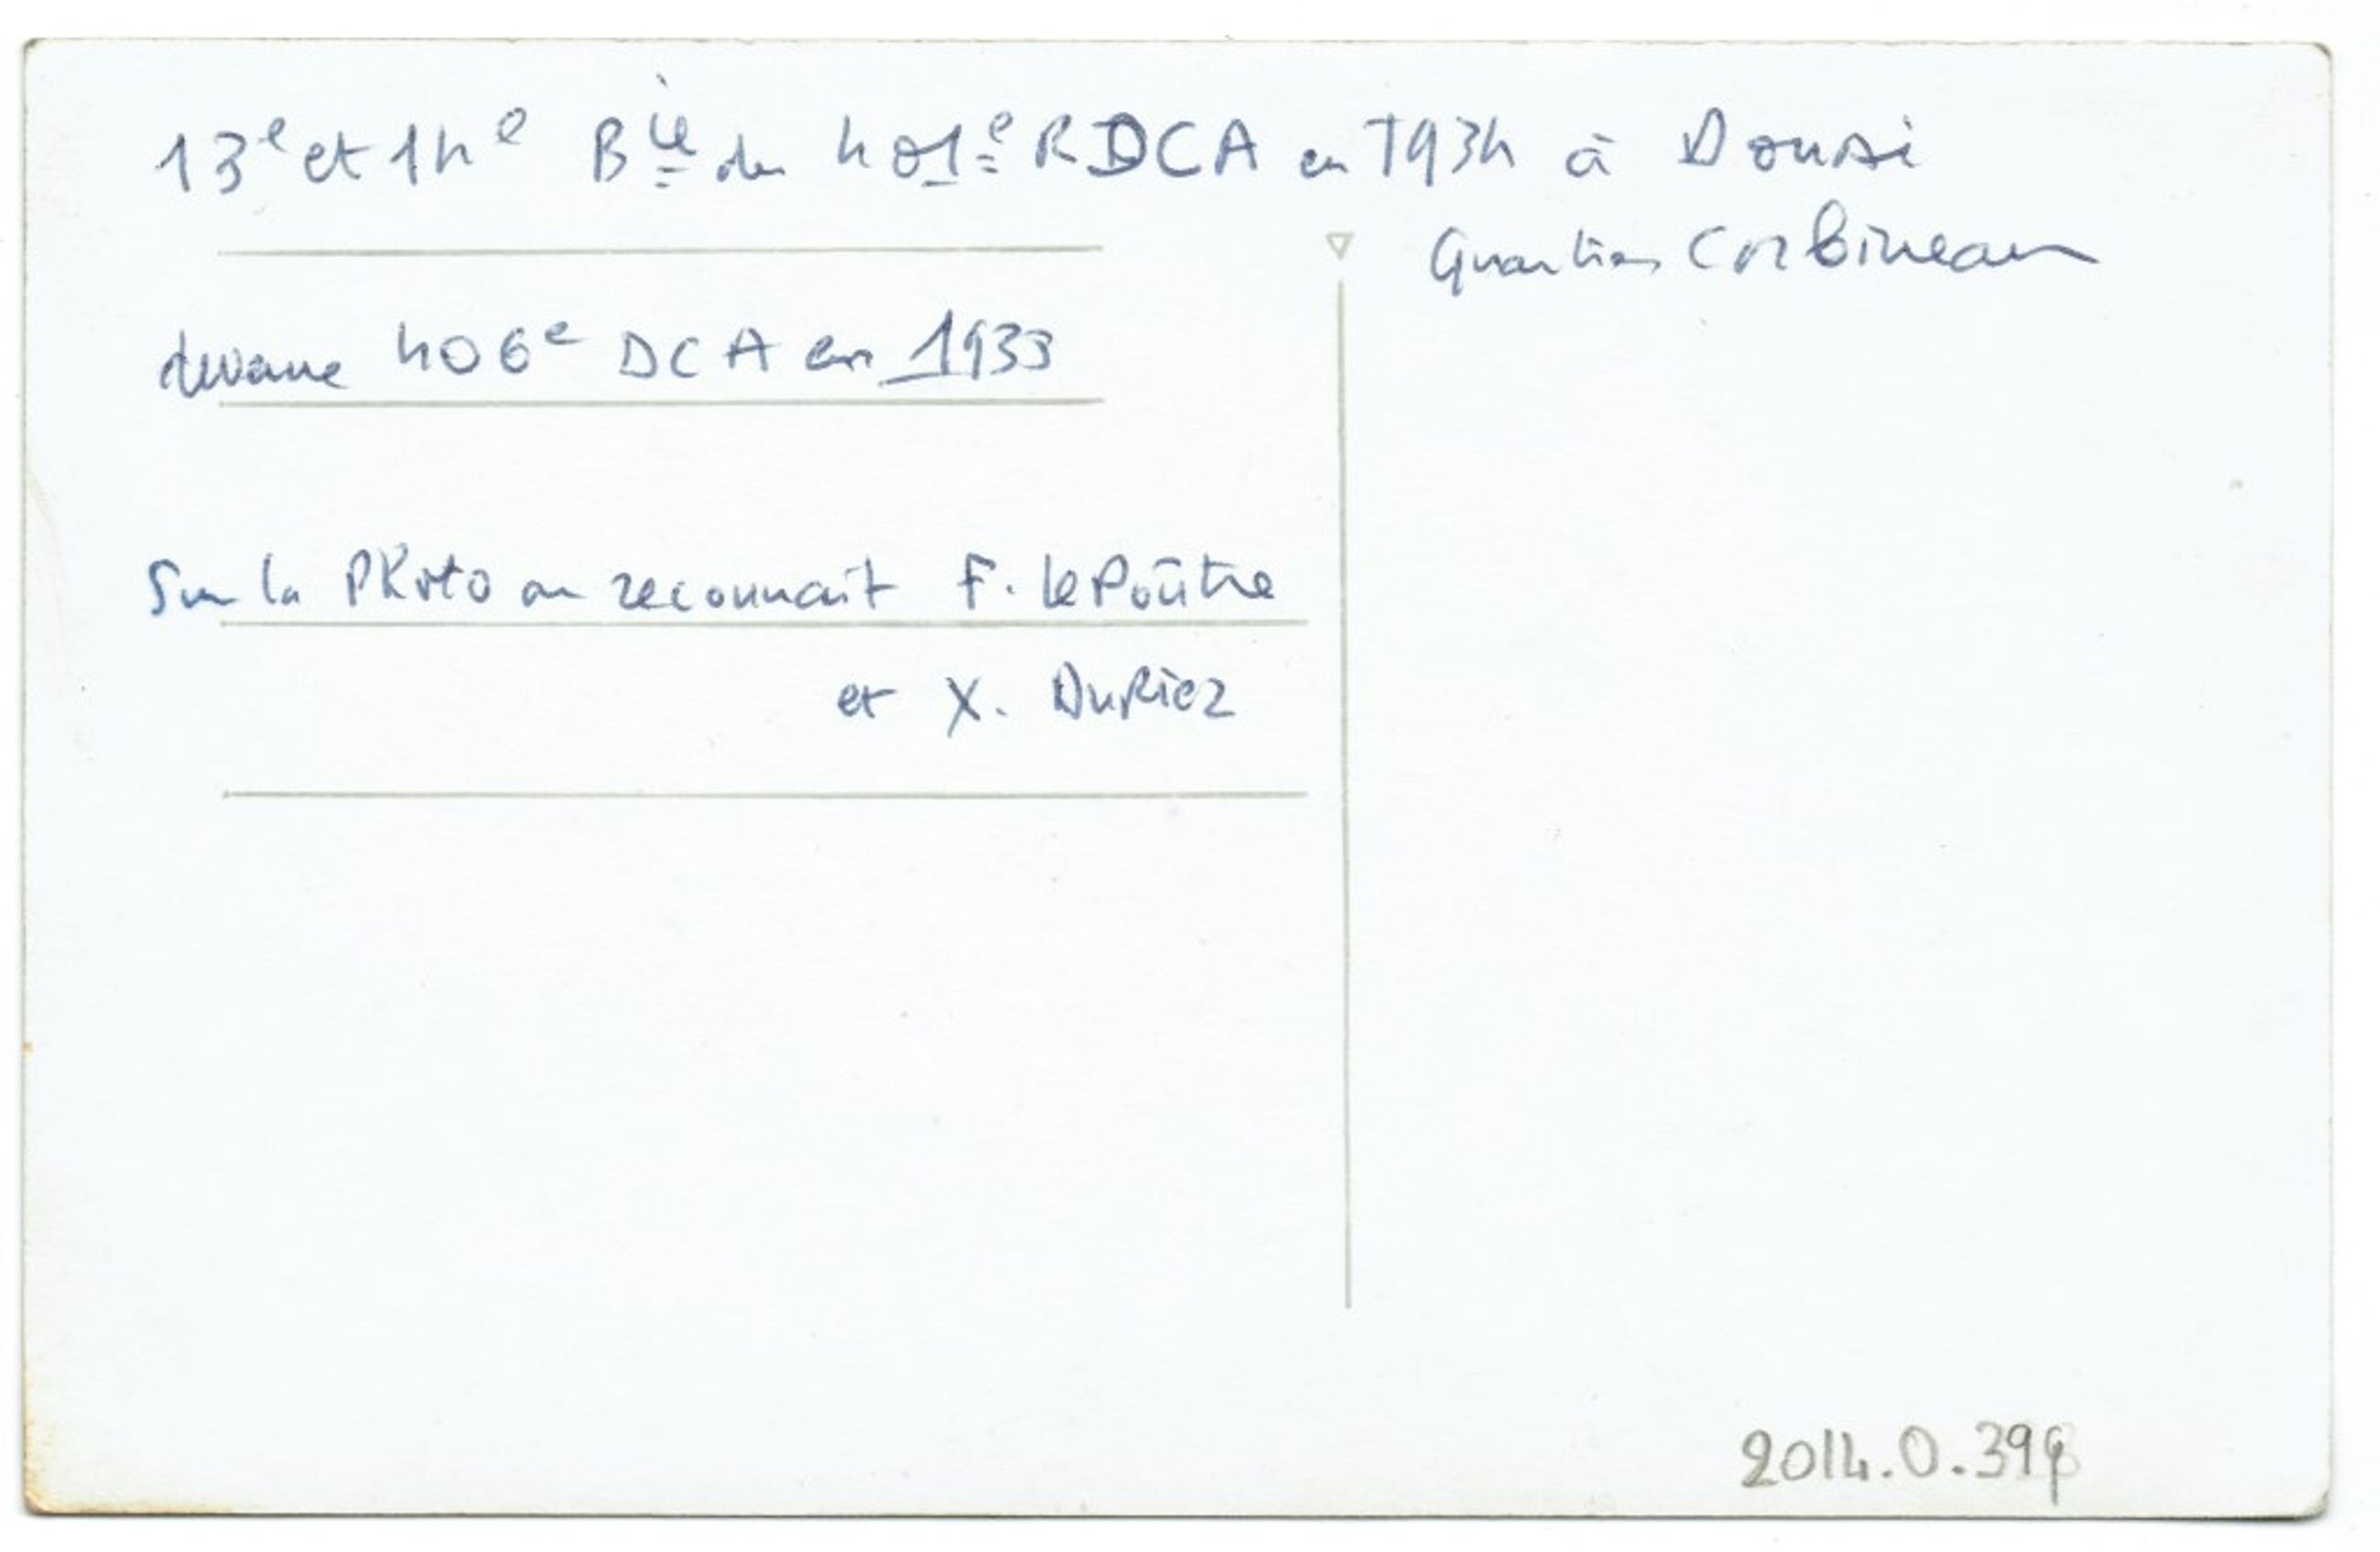 13e et 14e Bie du 401e RDCA en 1934 à Douai
Quartier Corbineau
devenue 406e DCA en 1933
Sur la Photo on reconnait F. lePoûtre
et X. DuRiez
2014.0.399